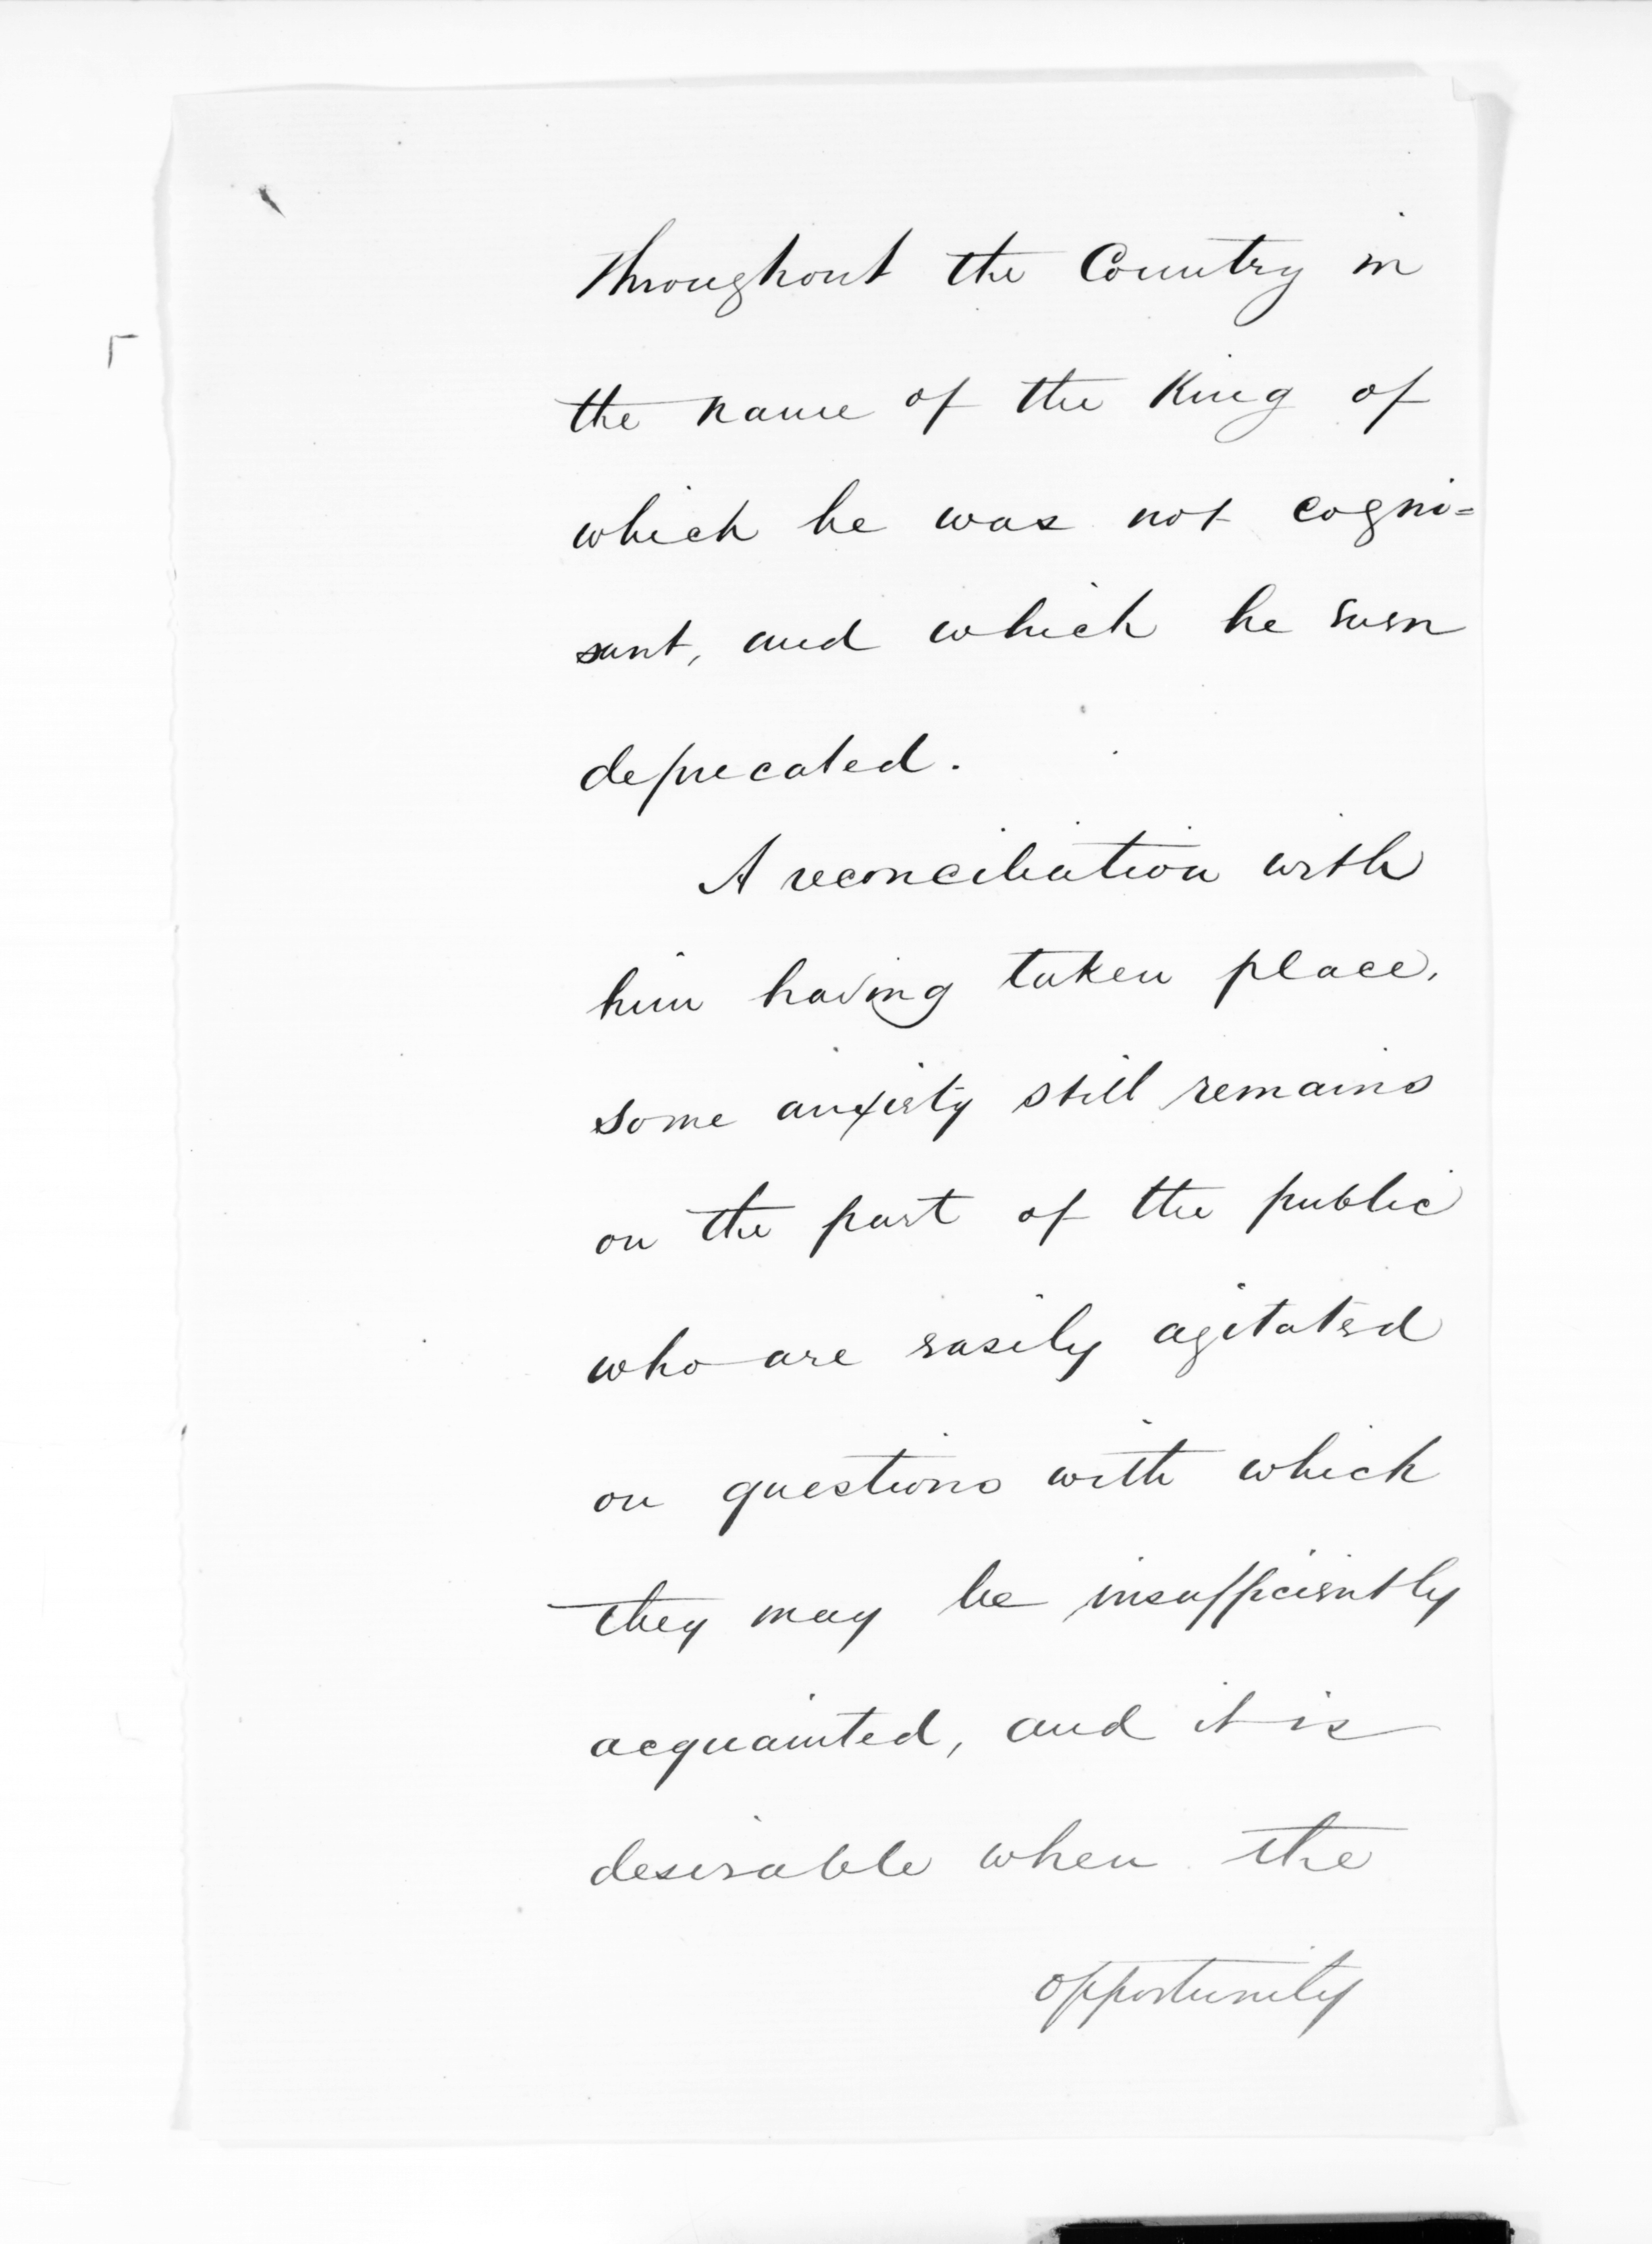 throughout the Country in
the name of the King of
which he was not cogni=
sant, and which he even
deprecated.
A reconciliation with
him having taken place,
some anxiety still remains
on the part of the public
who are easily agitated
on questions with which
they may be insufficiently
acquainted, and it is
desirable when the
opportunity